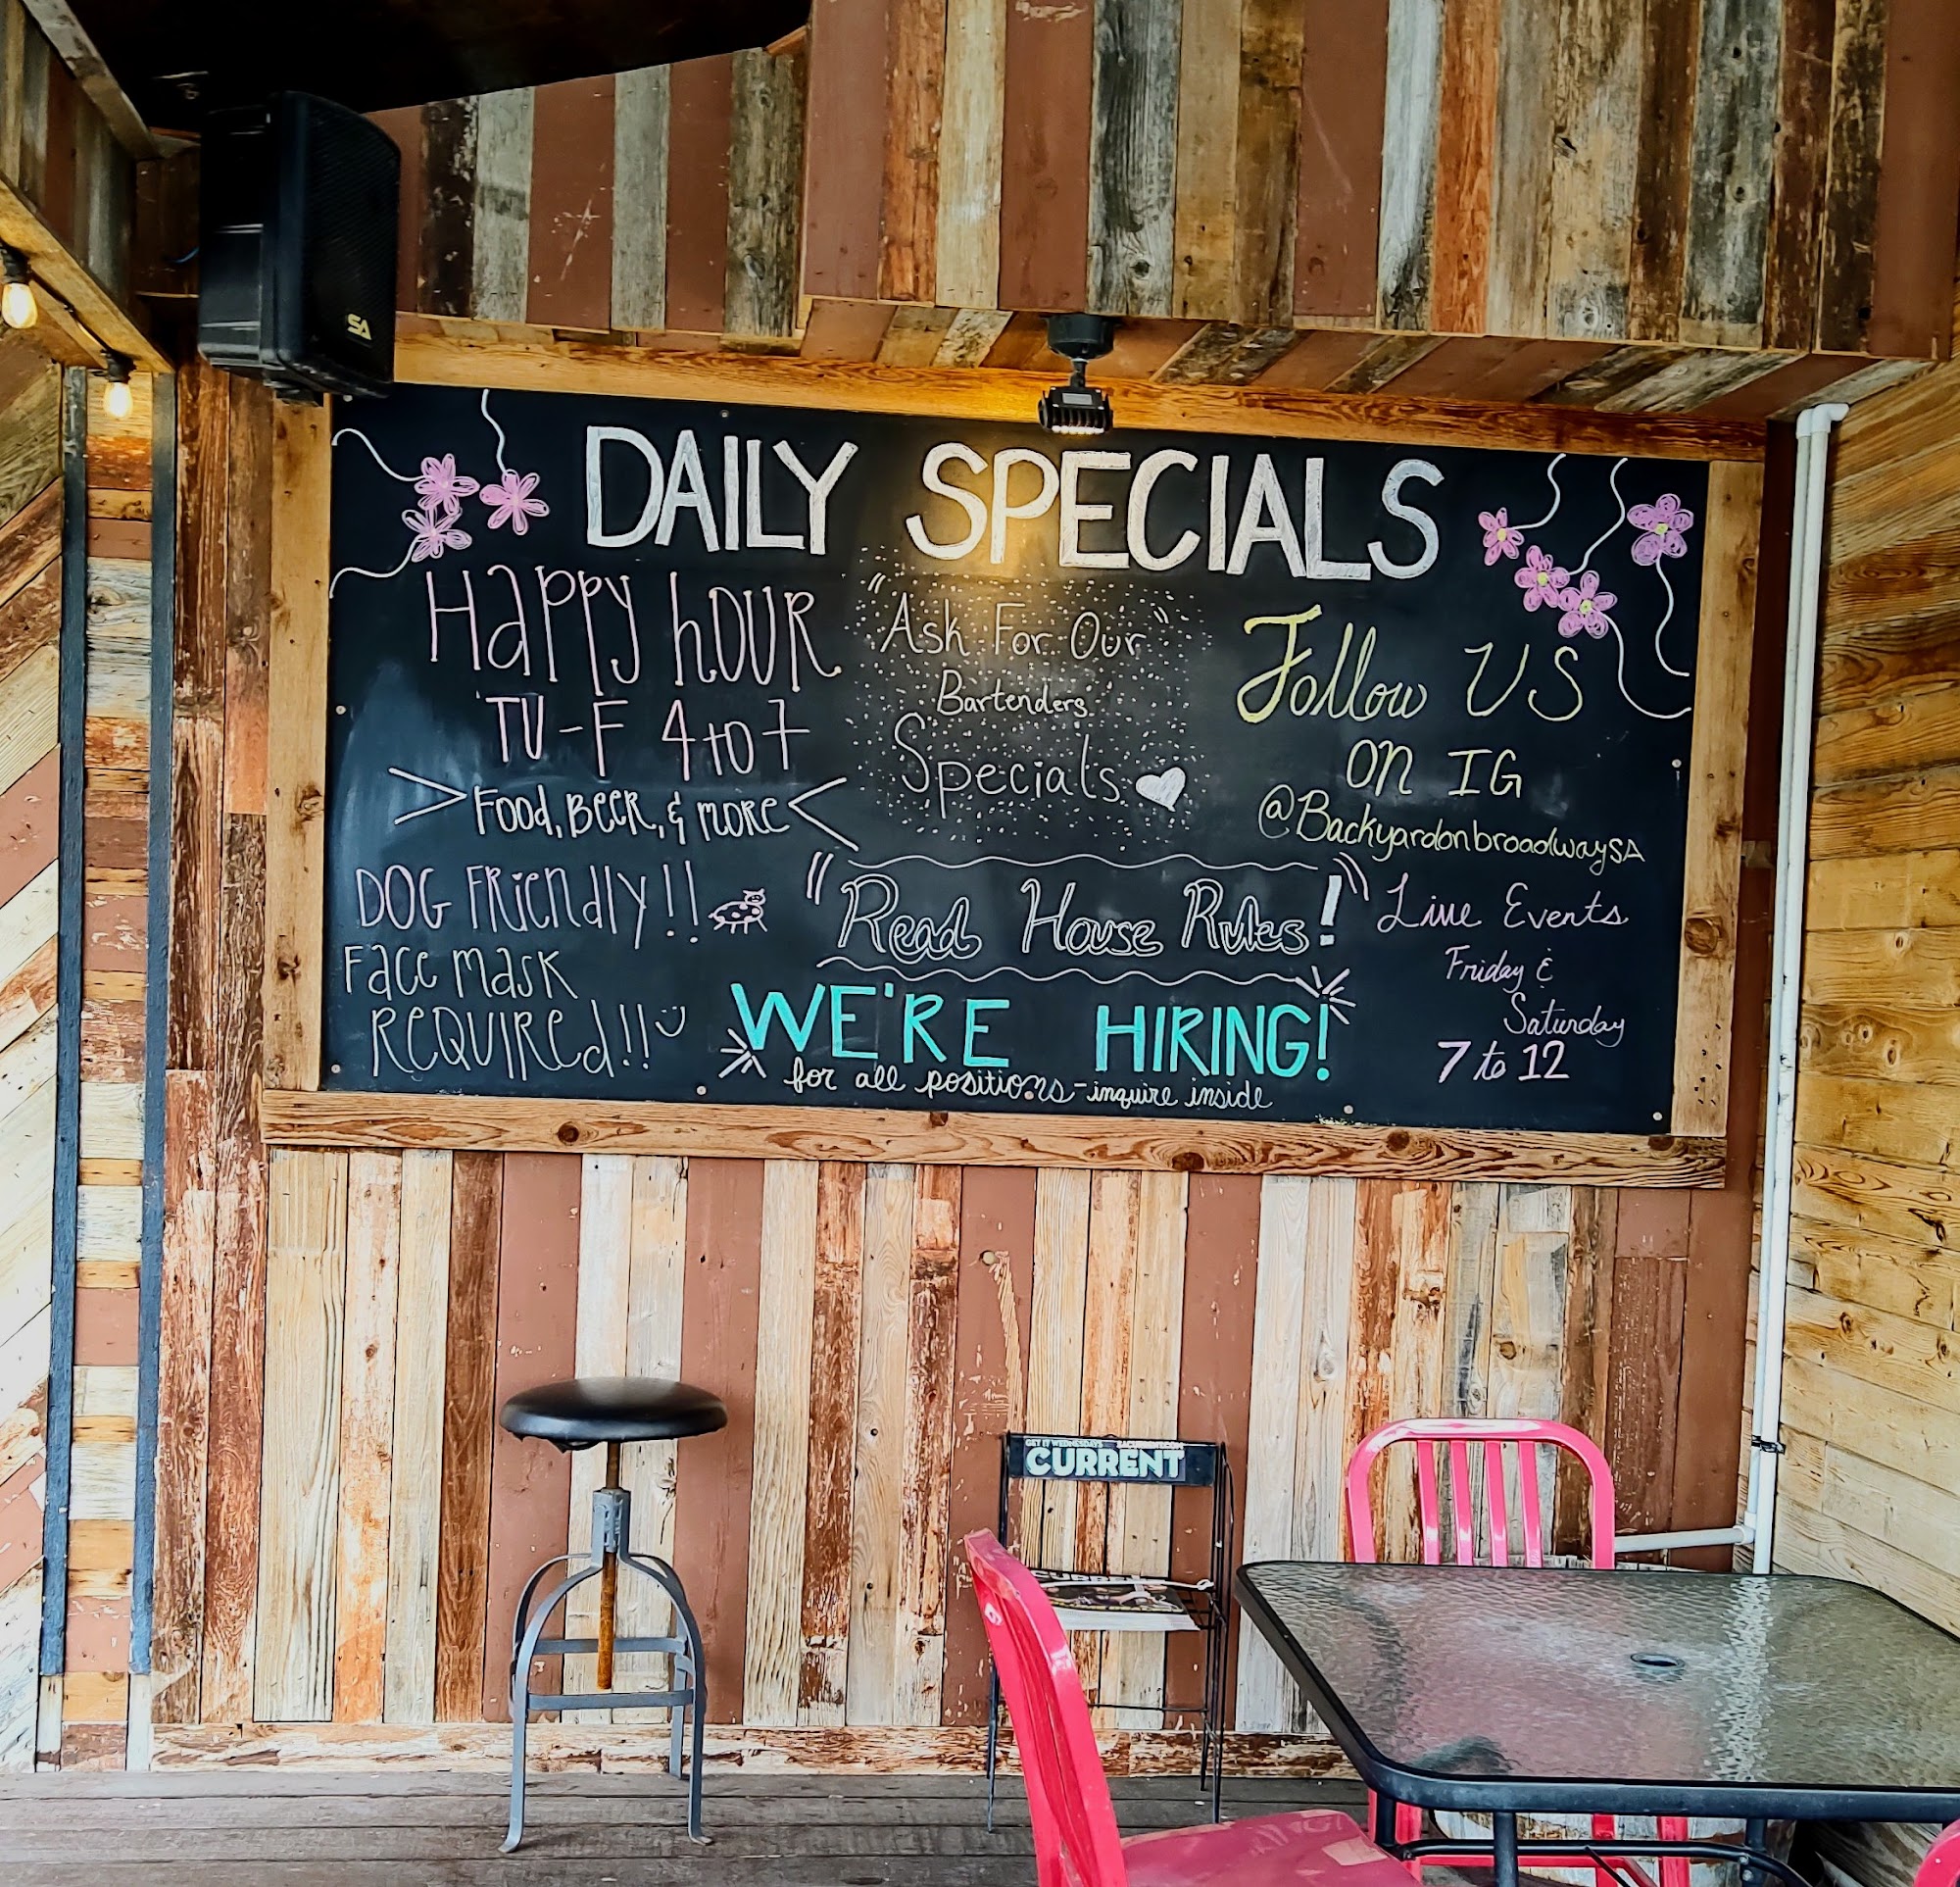 DAILY SPECIALS
Happy hOUR
TU-F 4 to 7
>Food, BEER, & MORE<
DOG FRiEndly!!
FacE mask
REQUIREd!!!
"Ask For Our"
Bartenders
Specials
"Read House Rules!"
WE'RE HIRING!
for all positions - inquire inside
Follow US
on IG
@BackyardonbroadwaySA
Live Events
Friday &
Saturday
7 to 12
SA
GET IT WEDNESDAYS
CURRENT